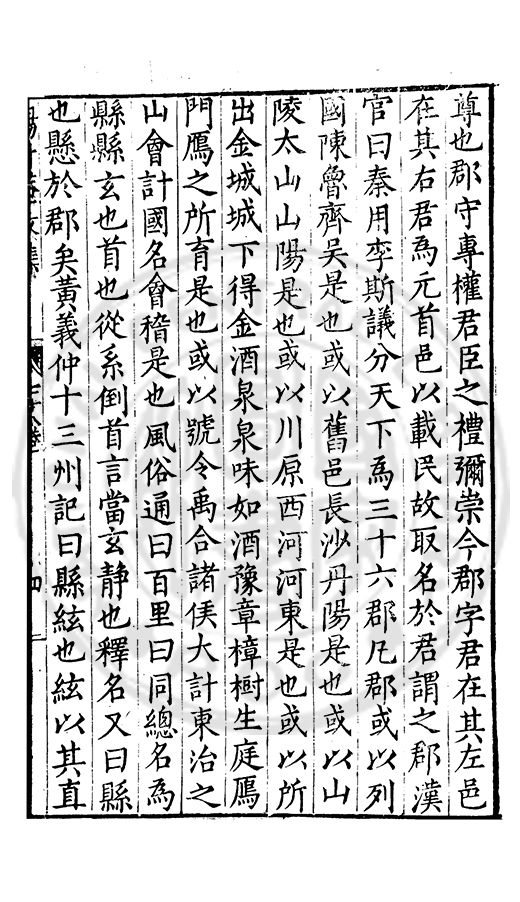 尊也郡守專權君臣之禮彌崇今郡字君在其左邑
在其右君爲元首邑以載民故取名於君謂之郡漢
官曰秦用李斯議分天下爲三十六郡凡郡或以列
國陳魯齊吳是也或以舊邑長沙丹陽是也或以山
陵太山山陽是也或以川原西河河東是也或以所
出金城城下得金酒泉泉味如酒豫章樟樹生庭鴈
門鴈之所育是也或以號令禹合諸侯大計東治之
山會計國名會稽是也風俗通曰百里曰同總名爲
縣縣玄也首也從系倒首言當玄静也釋名又曰縣
也懸於郡矣黃義仲十三州記曰縣絃也絃以其直